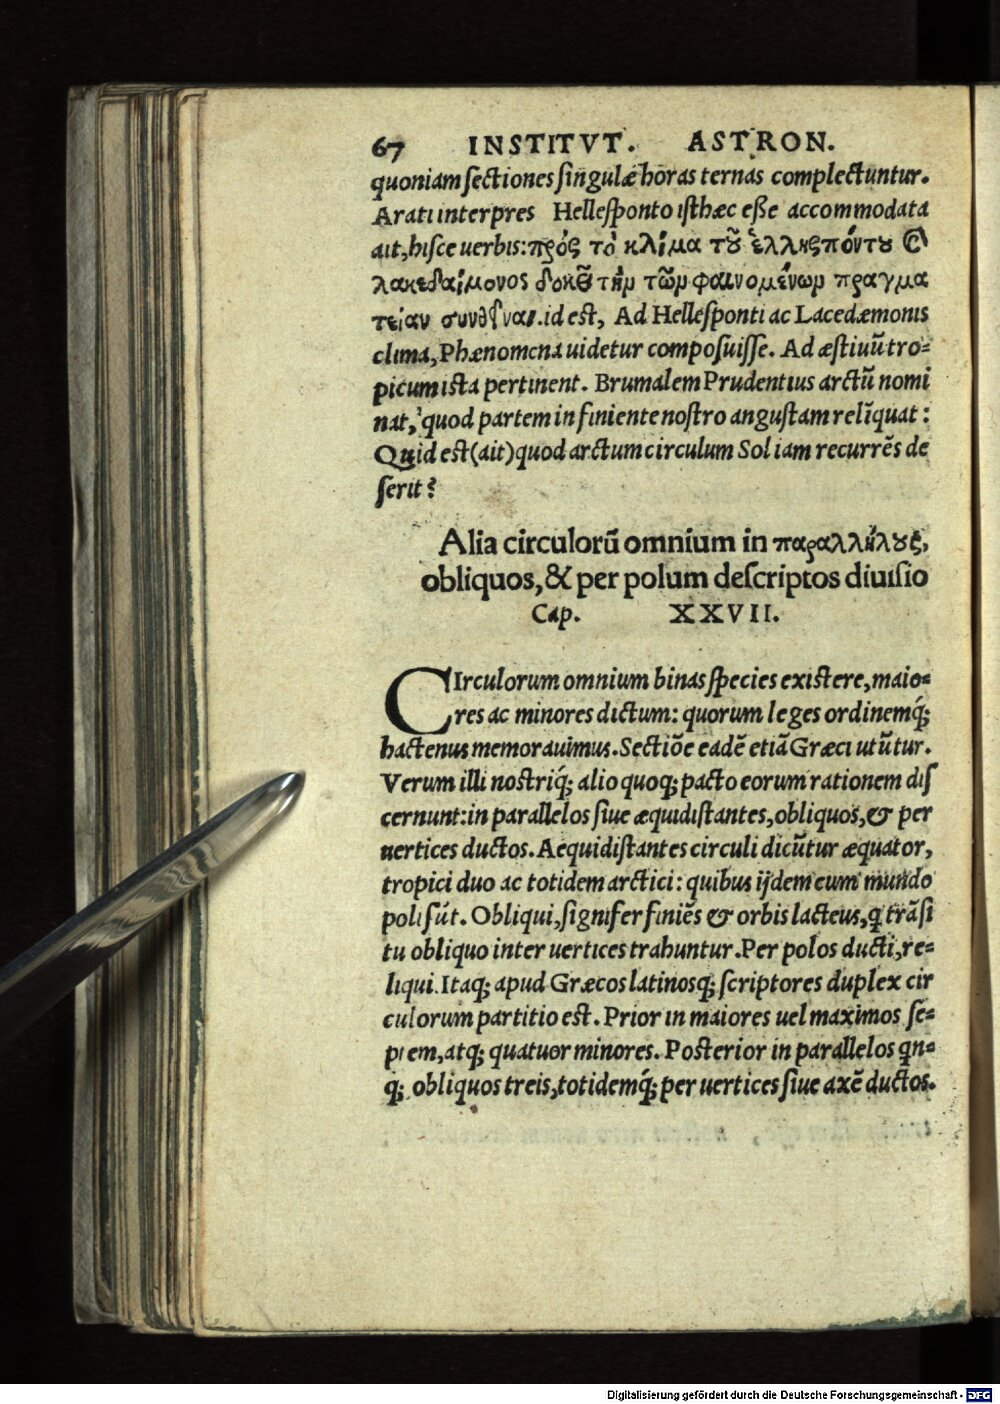 67 INSTITVT. ASTRON.
quoniam sectiones singulæ horas ternas complectuntur.
Arati interpres Hellesponto isthæc esse accommodata
ait, hisce uerbis: πρός τὸ κλίμα τοῦ ἑλλησπόντου καὶ
λακεδαίμονος δοκεῖ τὴν τῶν φαινομένων πραγμα
τείαν συνθεῖναι. id est, Ad Hellesponti ac Lacedæmonis
clima, Phænomena uidetur composuisse. Ad æstiuũ tro-
picum ista pertinent. Brumalem Prudentius arctũ nomi
nat, quod partem in finiente nostro angustam relĩquat:
Quid est (ait) quod arctum circulum Sol iam recurrẽs de
serit?
Alia circulorũ omnium in παραλλήλους,
obliquos, & per polum descriptos diuisio
Cap. XXVII.
CIrculorum omnium binas species existere, maio-
res ac minores dictum: quorum leges ordinemq́;
hactenus memorauimus. Sectiõe eadẽ etiã Græci utũtur.
Verum illi nostriq́; alio quoq; pacto eorum rationem dis
cernunt: in parallelos siue æquidistantes, obliquos, & per
uertices ductos. Aequidistantes circuli dicũtur æquator,
tropici duo ac totidem arctici: quibus ijdem cum mundo
poli sũt. Obliqui, signifer finiẽs & orbis lacteus, q trãsi
tu obliquo inter uertices trahuntur. Per polos ducti, re-
liqui. Itaq; apud Græcos latinosq; scriptores duplex cir
culorum partitio est. Prior in maiores uel maximos se-
ptem, atq; quatuor minores. Posterior in parallelos qn-
q; obliquos treis, totidemq́; per uertices siue axẽ ductos.
Digitalisierung gefördert durch die Deutsche Forschungsgemeinschaft - DFG